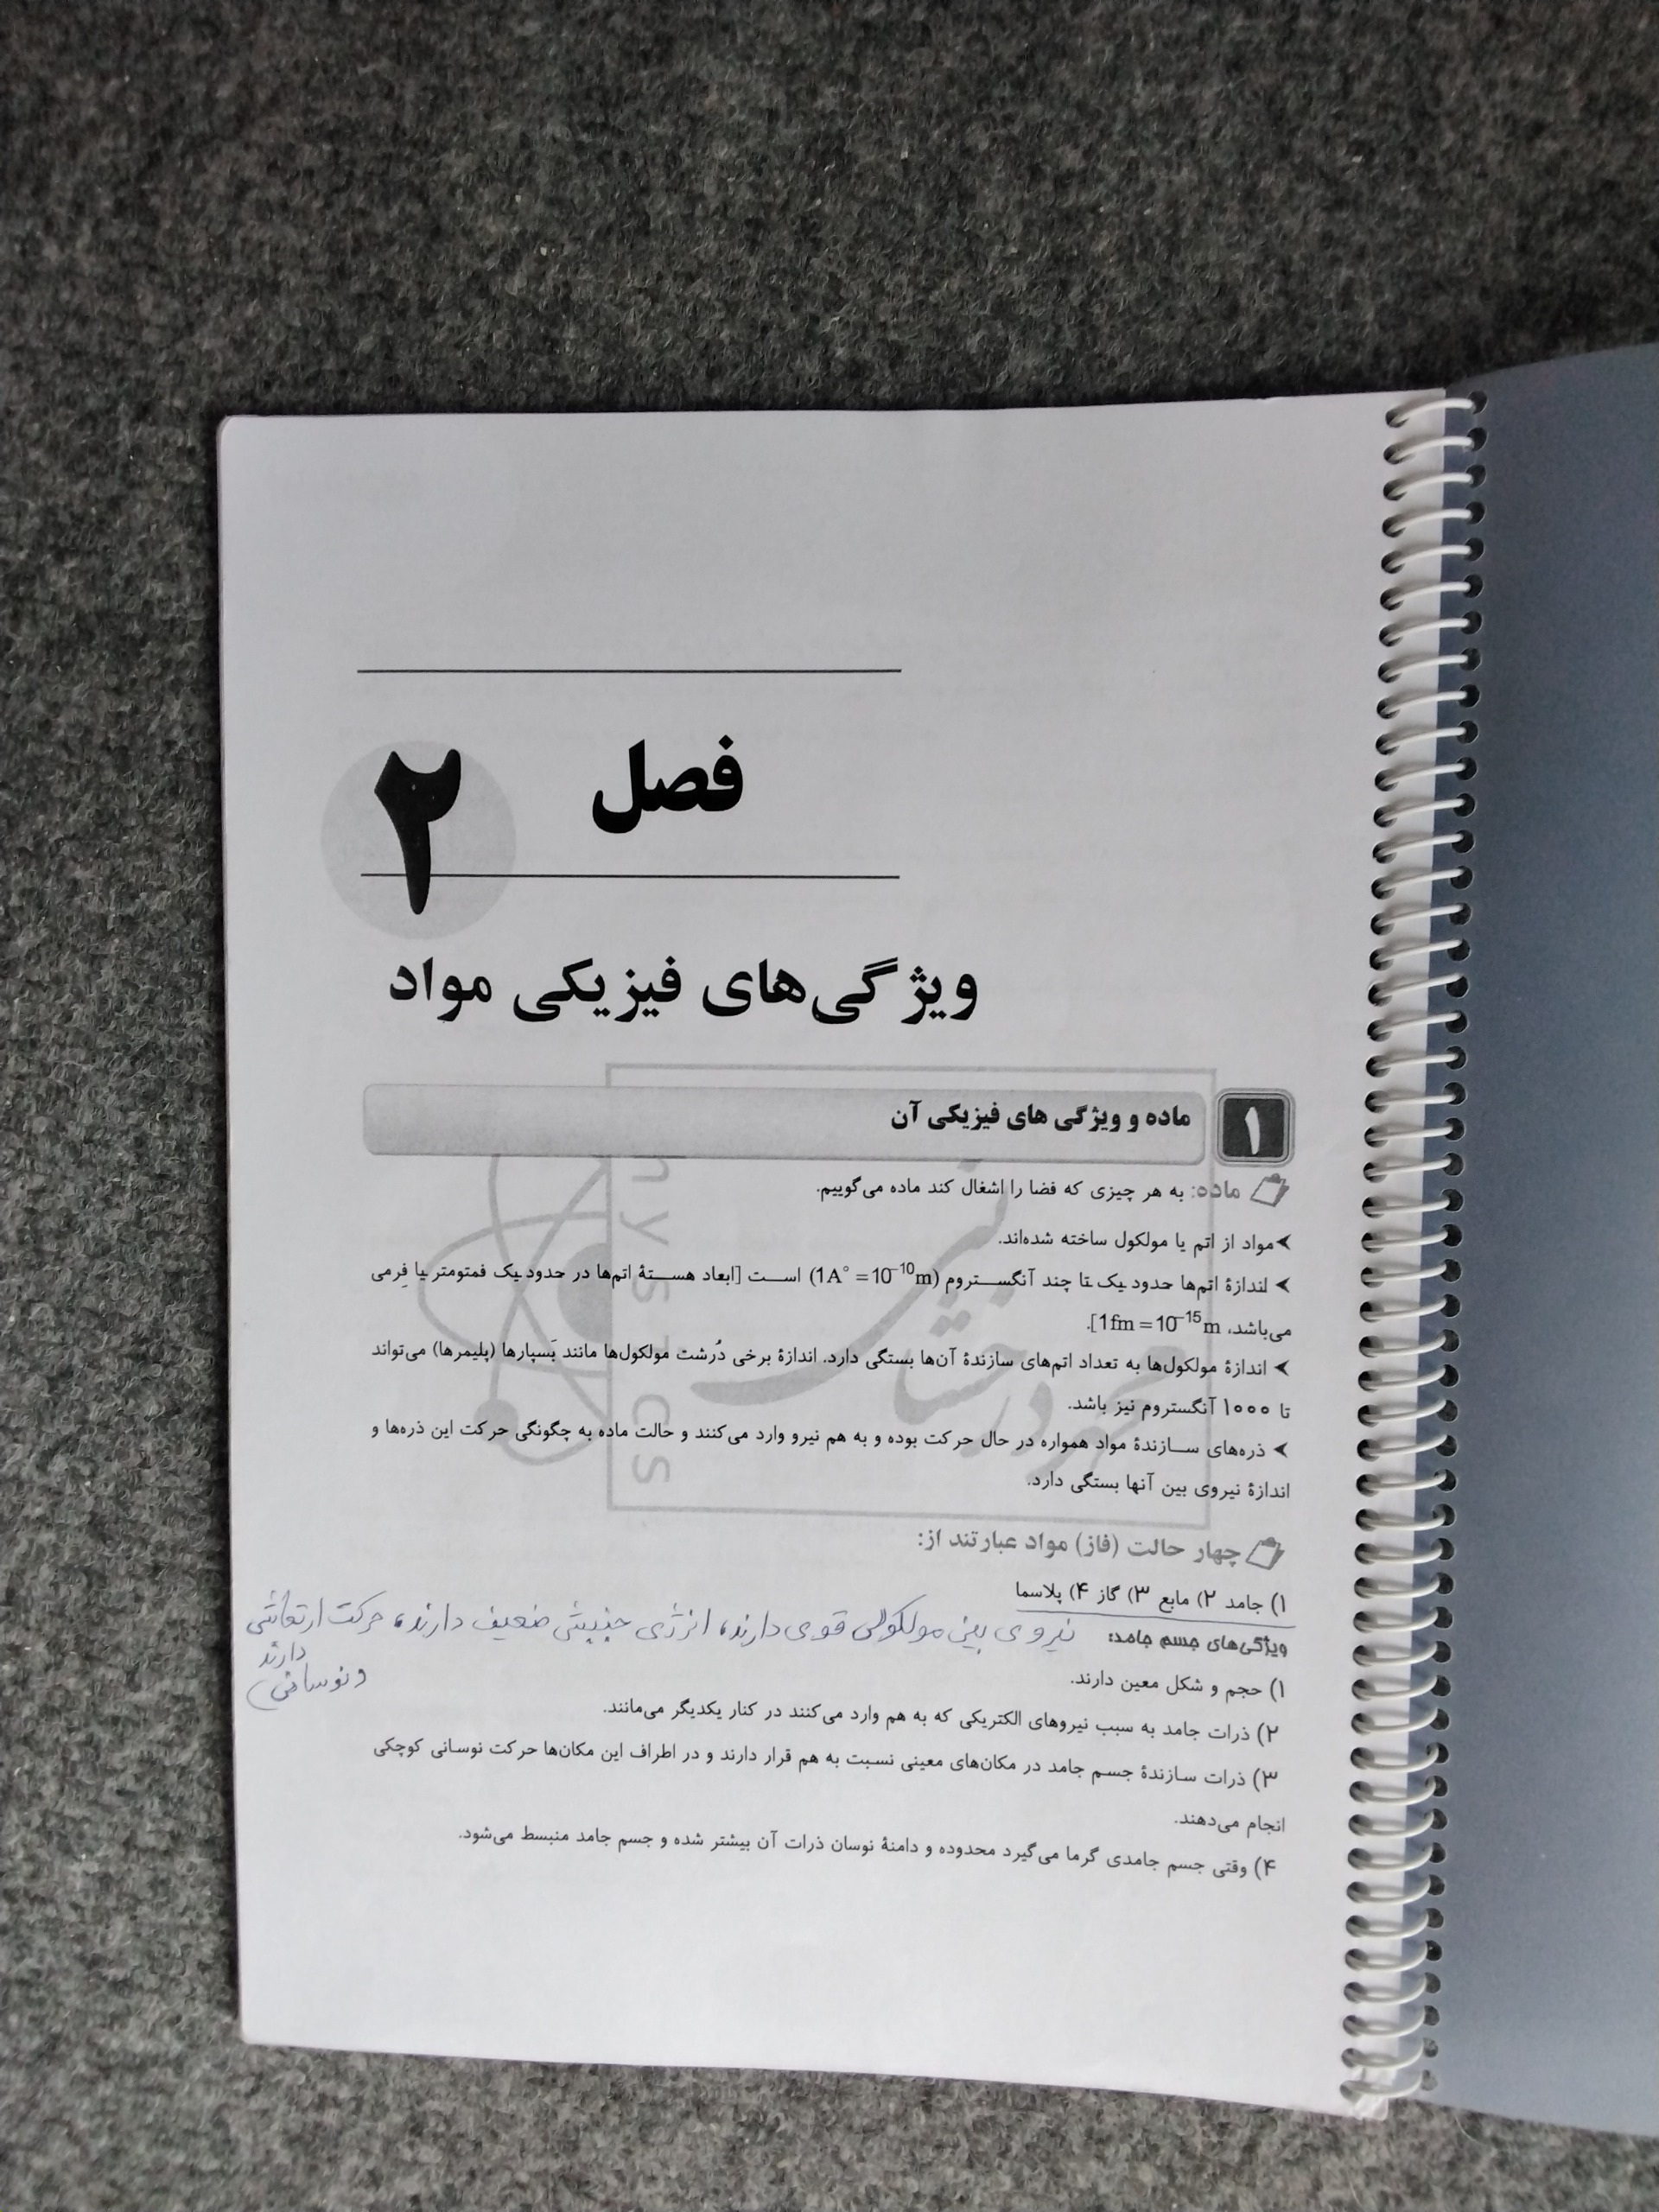 فصل ۲
ویژگی‌های فیزیکی مواد
۱ ماده و ویژگی های فیزیکی آن
ماده: به هر چیزی که فضا را اشغال کند ماده می‌گوییم.
➤مواد از اتم یا مولکول ساخته شده‌اند.
➤ اندازهٔ اتم‌ها حدود یک تا چند آنگستروم (1A° = 10⁻¹⁰m) است [ابعاد هستهٔ اتم‌ها در حدود یک فمتومتر یا فِرمی
می‌باشد، 1fm = 10⁻¹⁵m].
➤ اندازهٔ مولکول‌ها به تعداد اتم‌های سازندهٔ آن‌ها بستگی دارد. اندازهٔ برخی دُرشت مولکول‌ها مانند بَسپارها (پلیمرها) می‌تواند
تا ۱۰۰۰ آنگستروم نیز باشد.
➤ ذره‌های سازندهٔ مواد همواره در حال حرکت بوده و به هم نیرو وارد می‌کنند و حالت ماده به چگونگی حرکت این ذره‌ها و
اندازهٔ نیروی بین آنها بستگی دارد.
چهار حالت (فاز) مواد عبارتند از:
۱) جامد ۲) مایع ۳) گاز ۴) پلاسما
ویژگی‌های جسم جامد: نیروی بین مولکولی قوی دارند، انرژی جنبشی ضعیف دارند، حرکت ارتعاشی
دارند
و نوسانی)
۱) حجم و شکل معین دارند.
۲) ذرات جامد به سبب نیروهای الکتریکی که به هم وارد می‌کنند در کنار یکدیگر می‌مانند.
۳) ذرات سازندهٔ جسم جامد در مکان‌های معینی نسبت به هم قرار دارند و در اطراف این مکان‌ها حرکت نوسانی کوچکی
انجام می‌دهند.
۴) وقتی جسم جامدی گرما می‌گیرد محدوده و دامنهٔ نوسان ذرات آن بیشتر شده و جسم جامد منبسط می‌شود.